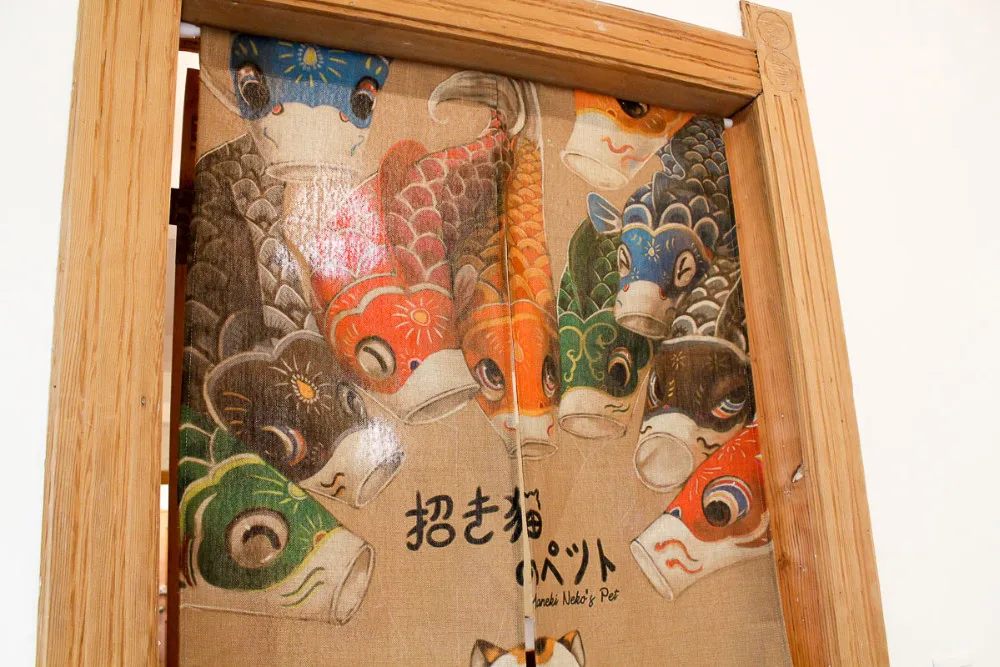 招き猫
のペット
Maneki Neko's Pet